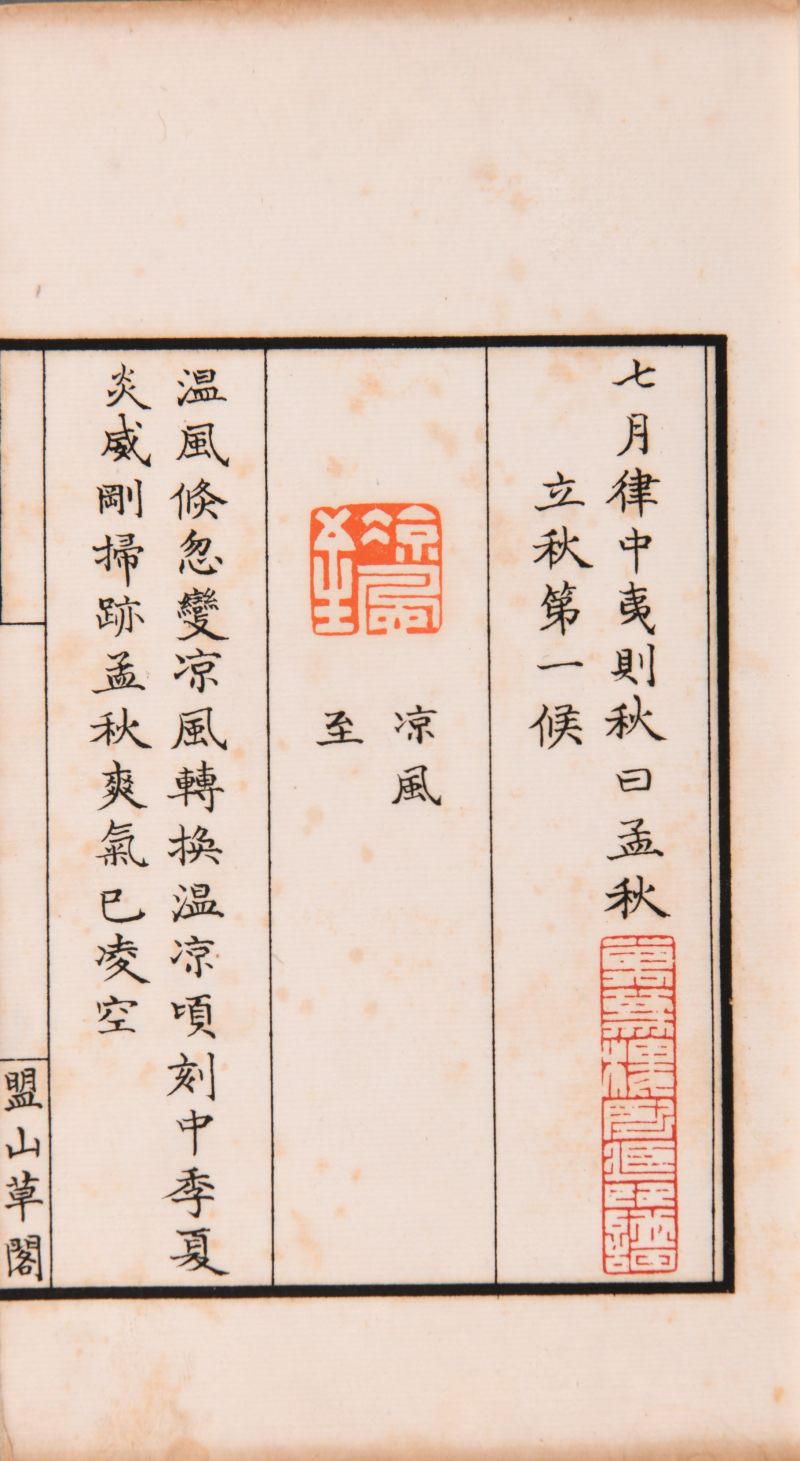 七月律中夷則秋曰孟秋
立秋第一候
凉風
至
凉風至
温風倐忽變凉風轉換温凉頃刻中季夏
炎威剛掃跡孟秋爽氣已凌空
盟山草閣